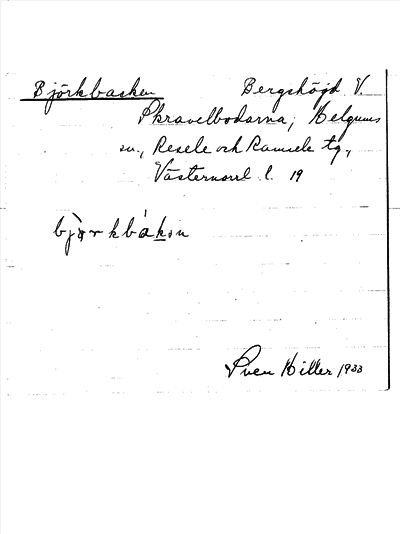 Björkbacken Bergshöjd V.
Skravelbodarna, Helgums
sn., Resele och Ramsele tg.,
Västernorrl. l. 19
bjòrkbákən
Sven Hiller 1933